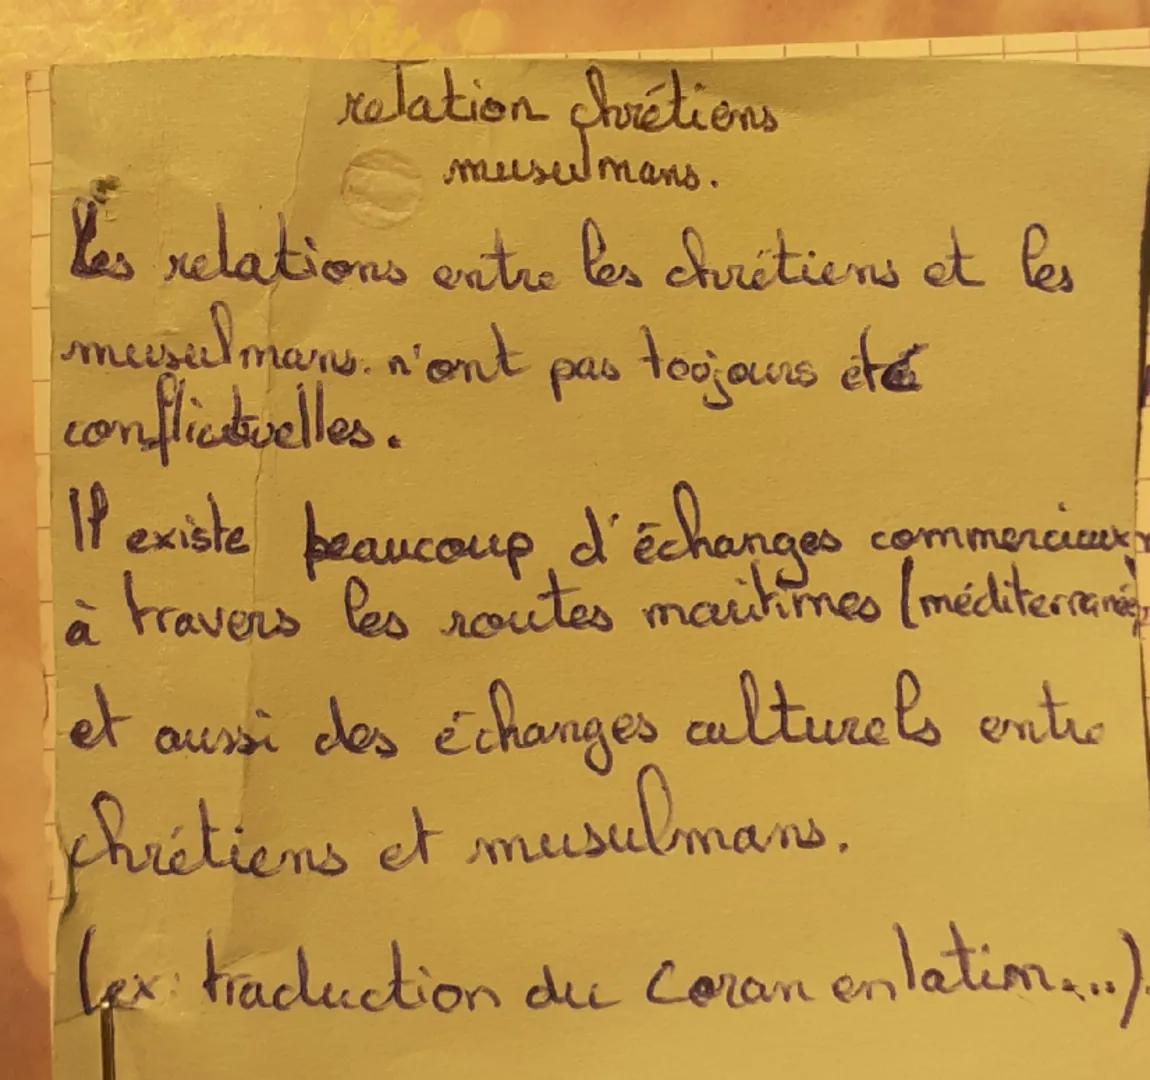 relation chrétiens
musulmans.
Les relations entre les chrétiens et les
musulmans. n'ont pas toojours été
conflictuelles.
Il existe beaucoup d'échanges commerciaux
à travers les routes maritimes (méditerranée,
et aussi des échanges culturels entre
chrétiens et musulmans.
(ex: traduction du Coran en lation...).